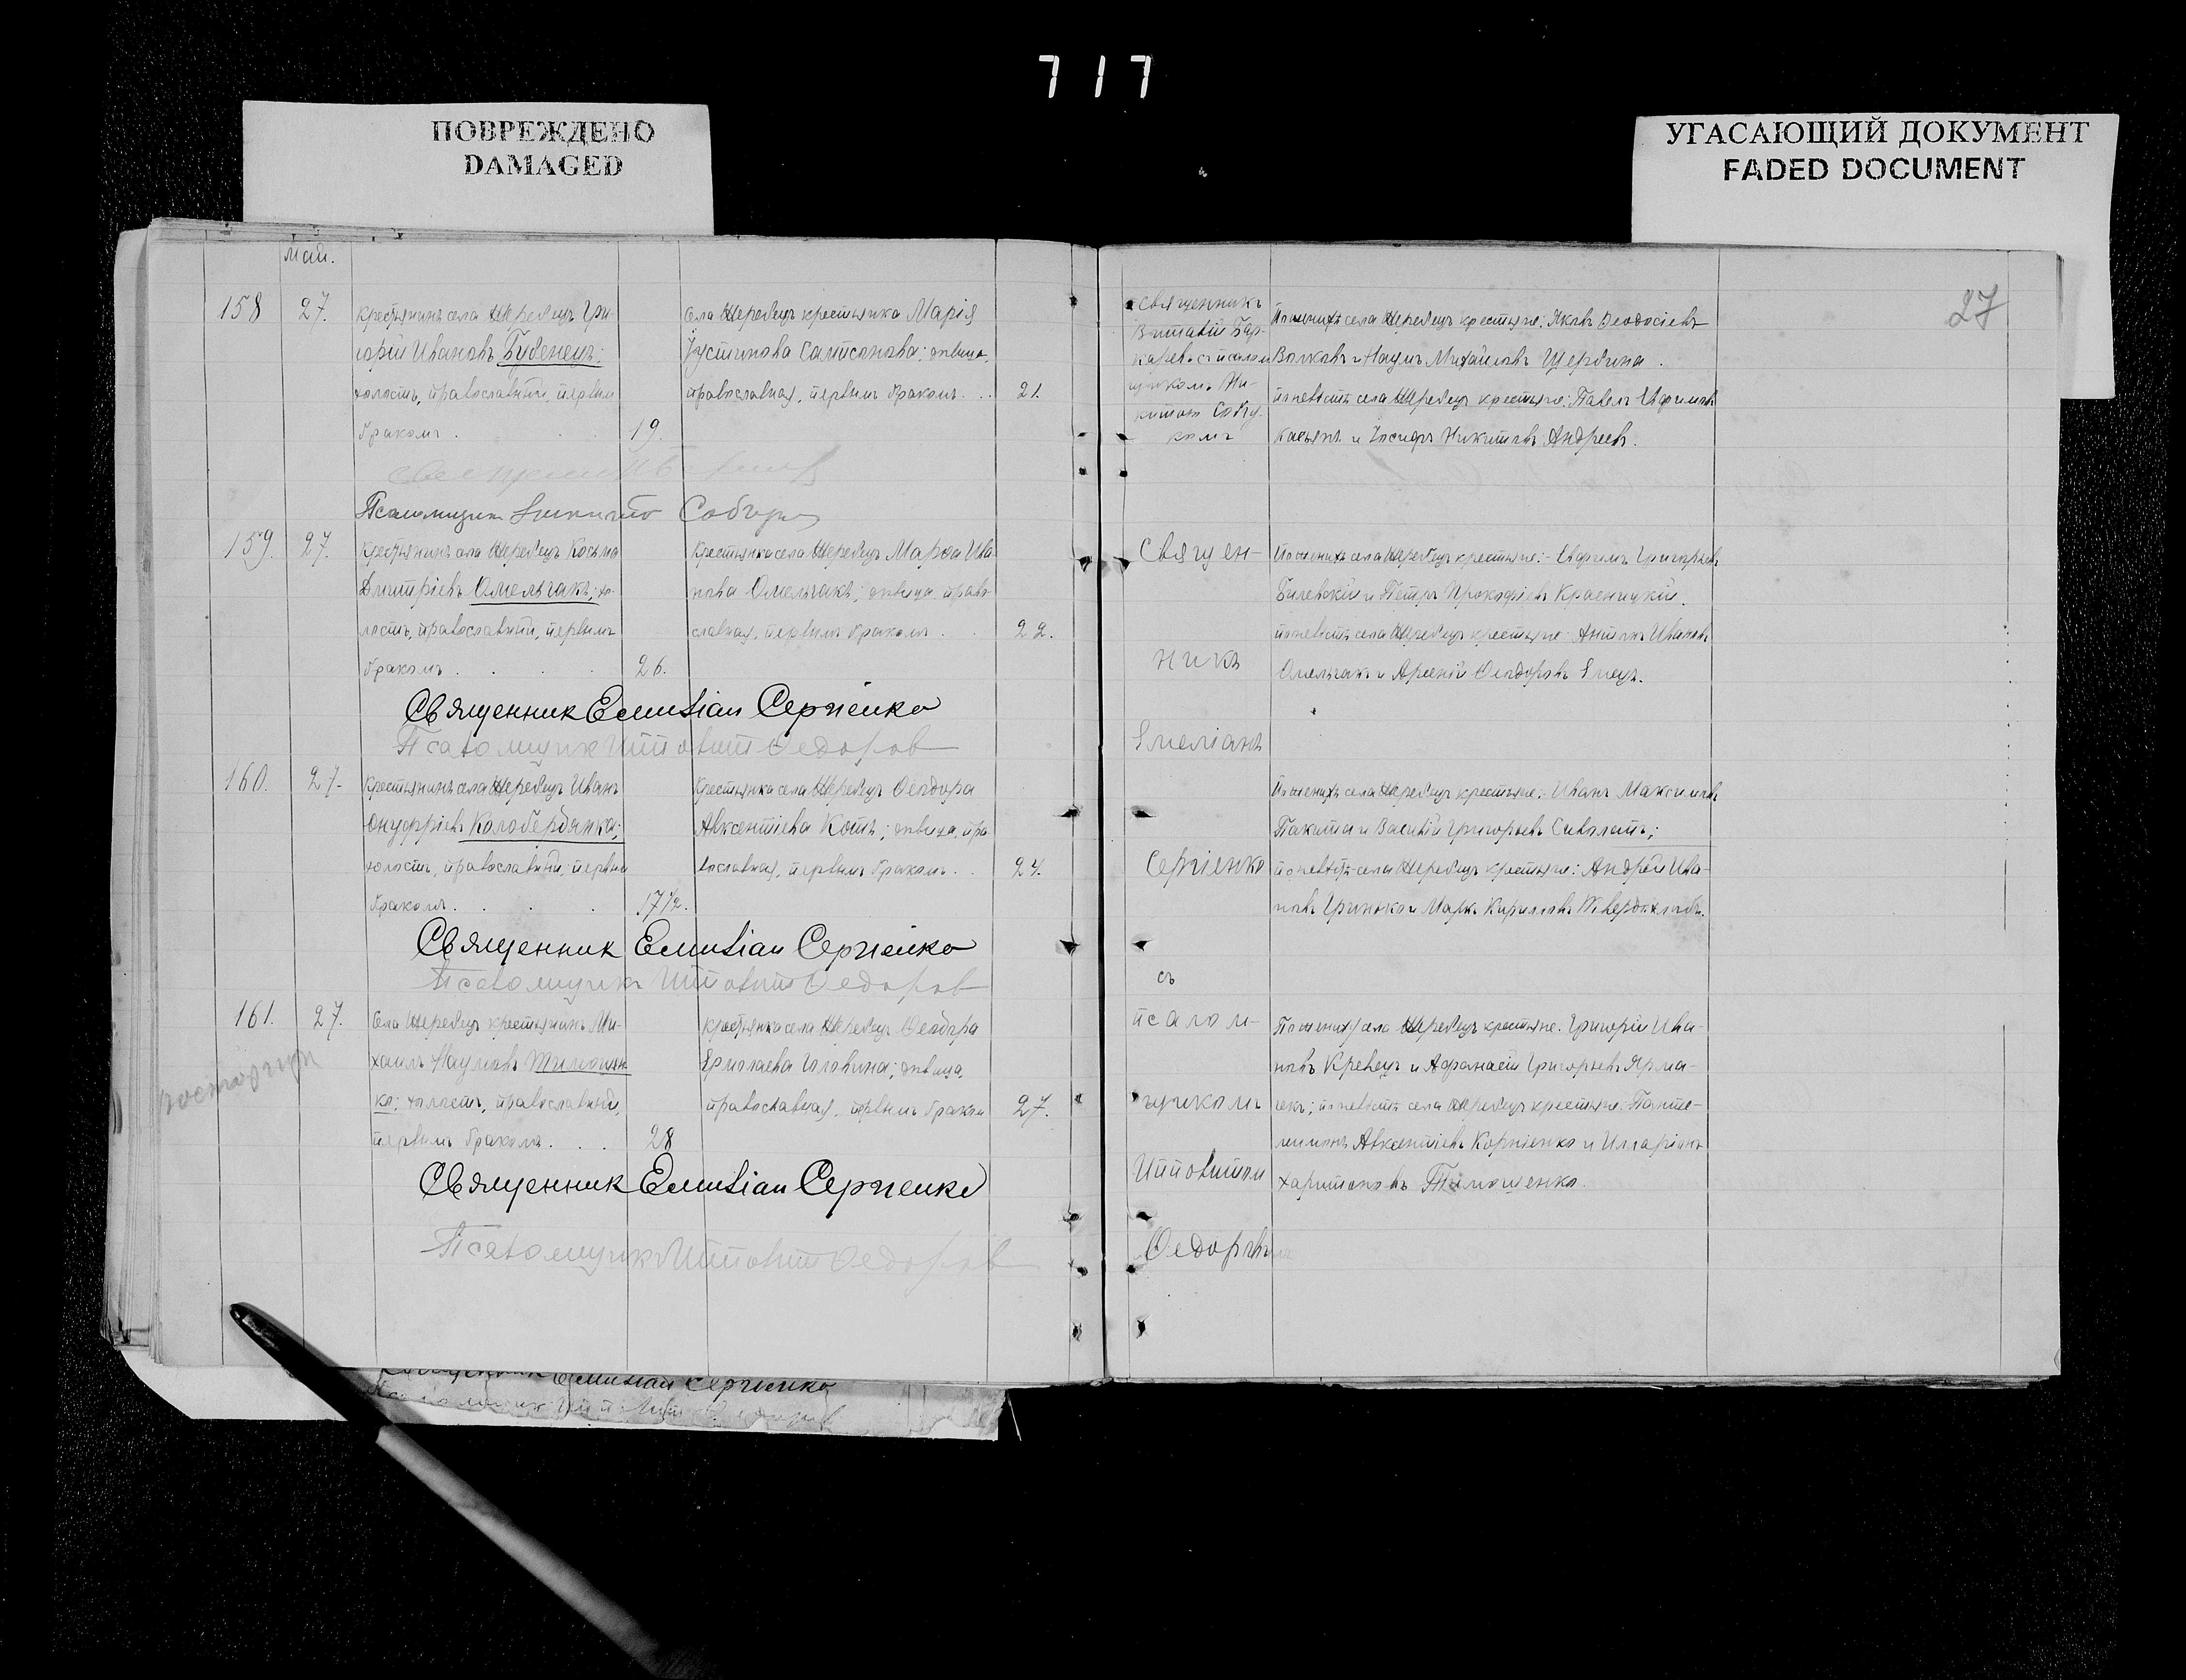 717
ПОВРЕЖДЕНО
DAMAGED
УГАСАЮЩИЙ ДОКУМЕНТ
FADED DOCUMENT
27
май.
158
27.
крестьянинъ села Жеребецъ Гри-
горій Ивановъ Бубенецъ;
холостъ, православный, первым
бракомъ.
19.
села Жеребецъ крестьянка Марія
Іустинова Самсонова; дѣвица,
православная, первым бракомъ
21.
священникъ
Виталій
Ни-
китою Собу-
комъ
По женихѣ села Жеребецъ крестьяне: Яковъ Ѳеодосіевъ
Волковъ и Наумъ Михайловъ Щербина.
по невѣстѣ села Жеребецъ крестьяне: Павелъ Ефимовъ
Касьянъ и Іосифъ Никитовъ Андреевъ.
Псаломщик
159.
27.
крестьянинъ села Жеребецъ Косьма
Димитріевъ Омельчакъ; хо-
лостъ, православный, первымъ
бракомъ
26.
крестьянка села Жеребецъ Марѳа Ива
нова Омельчакъ; дѣвица, право
славная, первымъ бракомъ
22.
священ-
По женихѣ села Жеребецъ крестьяне: Ефимъ Григорьевъ
Билевскій и Петръ Прокофіевъ Красницкій.
по невѣстѣ села Жеребецъ крестьяне: Антонъ Ивановъ
Омельчакъ и Арсеній Ѳеодоровъ Емецъ.
никъ
Священник Емиліан Сергіенко
Псаломщик Ипполит Федоров
Емеліанъ
160.
27.
крестьянинъ села Жеребецъ Иванъ
Онуфріевъ Колобердянка;
холостъ, православный, первым
бракомъ.
17 1/2.
крестьянка села Жеребецъ Ѳеодора
Авксентіева Котъ; дѣвица, пра
вославная, первымъ бракомъ
24.
По женихѣ села Жеребецъ крестьяне: Иванъ Максимовъ
и Василій Григорьевъ
Сергіенко
по невѣстѣ села Жеребецъ крестьяне: Андрей Ива-
новъ Гринько и Маркъ Кирилловъ Твердохлѣбъ.
Священник Емиліан Сергіенко
Псаломщикъ Ипполит Федоров
съ
161.
27.
расторгнут
села Жеребецъ крестьянинъ Ми-
хаилъ Наумовъ Тимошен
ко; холостъ, православный,
первымъ бракомъ.
28
крестьянка села Жеребецъ Ѳеодора
Ермолаева Головина; дѣвица,
православная, первымъ браком
27.
псалом-
По женихѣ села Жеребецъ крестьяне: Григорій Ива-
новъ Кревецъ и Афанасій Григорьевъ Ярма-
щикомъ
по невѣстѣ села Жеребецъ крестьяне: Панте-
леимонъ Авксентіевъ Корніенко и Илларіонъ
Ипполитом
Харитоновъ Тимошенко.
Священник Емиліан Сергіенко
Псаломщикъ Ипполит Федоров
Ѳедоровъ
Священник Емиліан Сергіенко